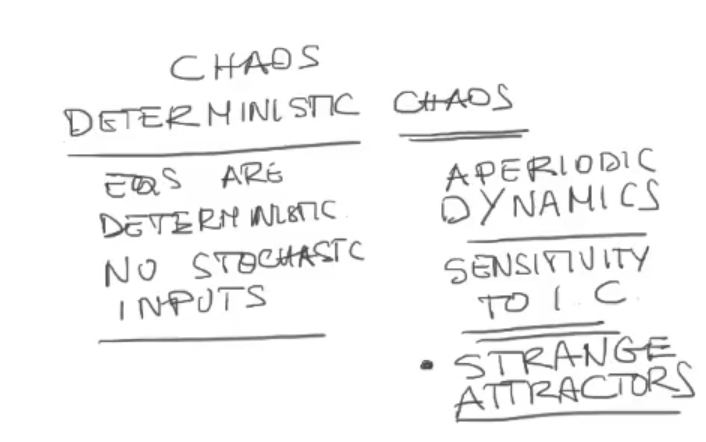 CHAOS
DETERMINISTIC CHAOS
EQS ARE
DETERMINISTIC
NO STOCHASTIC
INPUTS
APERIODIC
DYNAMICS
SENSITIVITY
TO I.C.
• STRANGE
ATTRACTORS